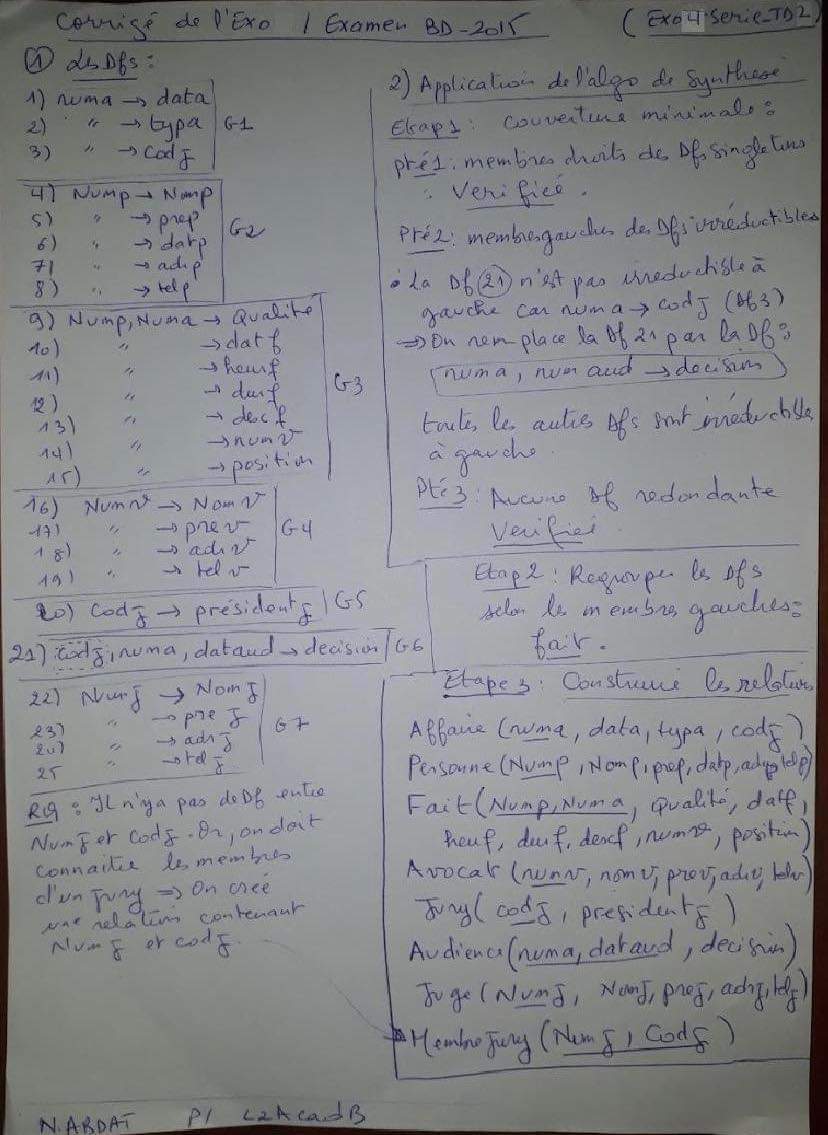 Corrigé de l'Exo / Examen BD-2015
(Exo4 Serie-TD2)
① Les Dfs:
1) numa → data
2) " → typa
3) " → codj
G1
4) Nump → Nomp
5) " → prep
6) " → datp
7) " → adrp
8) " → telp
G2
9) Nump, Numa → Qualité
10) " → datf
11) " → heurf
12) " → durf
13) " → descf
14) " → numv
15) " → position
G3
16) Numv → Nomv
17) " → prev
18) " → adrv
19) " → telv
G4
20) Codj → présidentj | G5
21) codj, numa, dataud → decision | G6
22) Numj → Nomj
23) " → prej
24) " → adrj
25 " → telj
G7
RQ: Il n'ya pas de Df entre
Numj et codj. Or, on doit
connaitre les membres
d'un Jury ⇒ On crée
une relation contenant
Numj et codj.
2) Application de l'algo de Synthese
Etap1: couverture minimale:
pté1: membres droits des Dfs singletons
: Verifiée.
Pté2: membres gauches des Dfs irréductibles
• la Df (21) n'est pas irreductible à
gauche car numa → codj (Df3)
⇒ On remplace la Df 21 par la Df:
numa, num aud → decision
toutes les autres Dfs sont irréductibles
à gauche.
Pté3: Aucune Df redondante
Verifiée.
Etap2: Regrouper les Dfs
selon les membres gauches:
fait.
Etape3: Construire les relations
Affaire (numa, data, typa, codj)
Personne (Nump, Nomp, prep, datp, adrp, telp)
Fait (Nump, Numa, Qualité, datf,
heuf, durf, descf, numv, position)
Avocat (numv, nomv, prev, adrv, telv)
Jury (codj, présidentj)
Audience (numa, dataud, decision)
Juge (Numj, Nomj, prej, adrj, telj)
Membre Jury (Numj, Codj)
N. ABDAT P1 L2AcadB